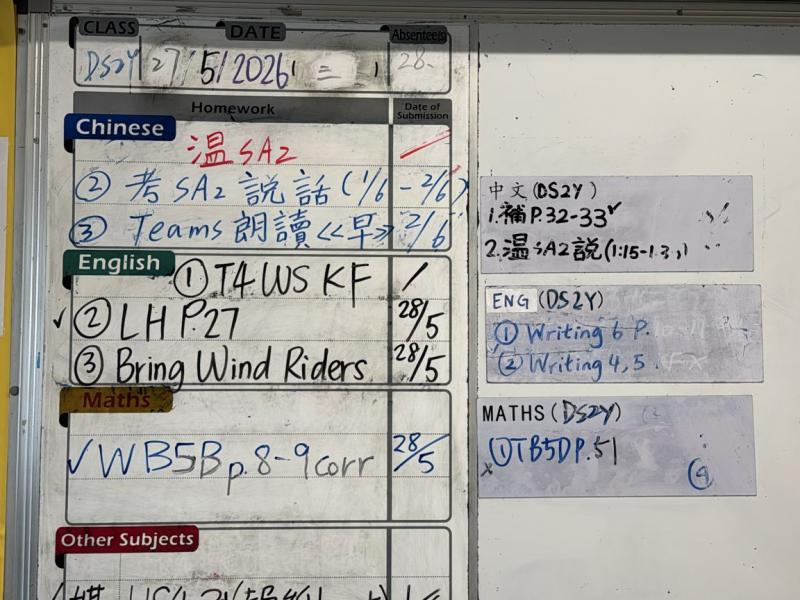 CLASS DATE Absentee(s)
DS2Y 27/5/2026 (三) 28
Homework Date of Submission
Chinese
温SA2
② 考SA2說話(1/6-2/6)
③ Teams朗讀《早》 2/6
English
① T4 WS KF /
✓② LH P.27 28/5
③ Bring Wind Riders 28/5
Maths
✓WB5B p.8-9 corr 28/5
Other Subjects
中文(DS2Y)
1.補P.32-33✓
2.温SA2說
ENG (DS2Y)
① Writing 6 P.
② Writing 4,5
MATHS (DS2Y)
①TB5D P.51
x
④